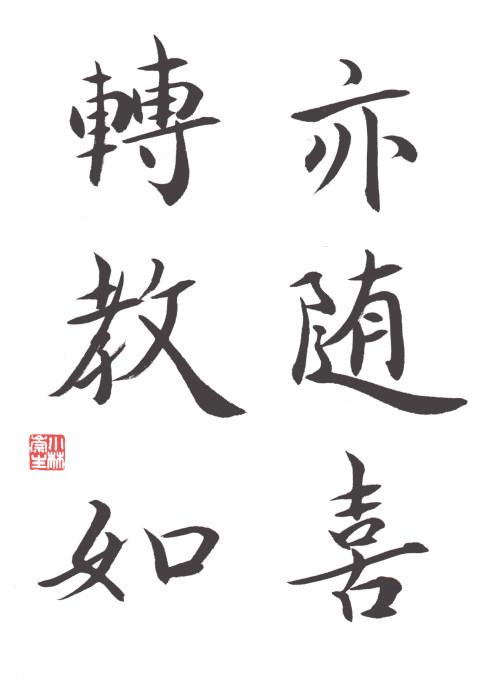 亦随喜
轉教如
小林